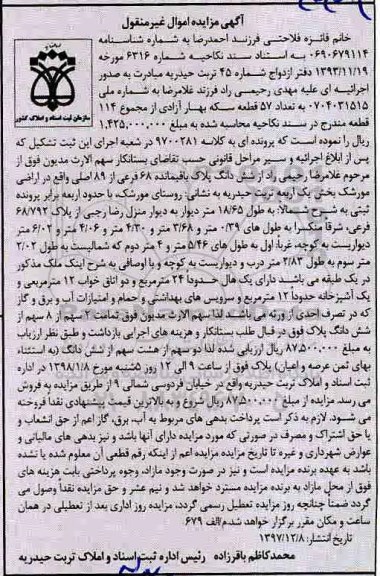 آگهی مزایده اموال غیرمنقول
خانم فائزه فلاحتی فرزند احمدرضا به شماره شناسنامه
۰۶۹۰۶۷۹۱۱۴ به استناد سند نکاحیه شماره ۶۳۱۶ مورخه
۱۳۹۳/۱۱/۱۹ دفتر ازدواج شماره ۴۵ تربت حیدریه مبادرت به صدور
اجرائیه ای علیه مهدی رحیمی راد فرزند غلامرضا به شماره ملی
۰۷۰۴۰۳۱۵۱۵ به تعداد ۵۷ قطعه سکه بهار آزادی از مجموع ۱۱۴
قطعه مندرج در سند نکاحیه محاسبه شده به مبلغ ۱،۴۲۵،۰۰۰،۰۰۰
ریال را نموده است که پرونده ای به کلاسه ۹۷۰۰۲۸۱ در شعبه اجرای این ثبت تشکیل که
پس از ابلاغ اجرائیه و سیر مراحل قانونی حسب تقاضای بستانکار سهم الارث مدیون فوق از
مرحوم غلامرضا رحیمی راد از شش دانگ پلاک باقیمانده ۶۸ فرعی از ۸۹ اصلی واقع در اراضی
مورشک بخش یک اربعه تربت حیدریه به نشانی: روستای مورشک با حدود اربعه برابر پرونده
ثبتی به شرح شمالا: به طول ۱۸/۶۵ متر دیوار به دیوار منزل رضا رجبی از پلاک ۶۸/۷۹۲
فرعی، شرقا منکسرا به طول های ۰/۳۹ متر و ۳/۶۸ متر و ۴/۳۰ متر و ۴/۰۶ متر و ۶/۰۲ متر
دیواریست به کوچه، غربا: اول به طول های ۵/۴۶ متر و ۴ متر دوم که شمالیست به طول ۲/۰۲
متر سوم به طول ۲/۸۳ متر درب و دیواریست به کوچه و با اوصافی به شرح اینک ملک مذکور
در یک طبقه می باشد دارای یک هال حدودا ۲۴ مترمربع و دو اتاق خواب ۱۲ مترمربعی و
یک آشپزخانه حدودا ۱۲ مترمربع و سرویس های بهداشتی و حمام و امتیازات آب و برق و گاز
که در تصرف احدی از ورثه می باشد. لذا سهم الارث مدیون فوق تمامت ۲ سهم از ۸ سهم از
شش دانگ پلاک فوق در قبال طلب بستانکار و هزینه های اجرایی بازداشت و طبق نظر ارزیاب
به مبلغ ۸۷،۵۰۰،۰۰۰ ریال ارزیابی شده لذا دو سهم از هشت سهم از شش دانگ (به استثناء
بهای ثمن عرصه و اعیان) پلاک فوق از ساعت ۹ الی ۱۲ روز ۵شنبه مورخ ۱۳۹۸/۱/۸ در اداره
ثبت اسناد و املاک تربت حیدریه واقع در خیابان فردوسی شمالی ۹ از طریق مزایده به فروش
می رسد. مزایده از مبلغ ۸۷،۵۰۰،۰۰۰ ریال شروع و به بالاترین قیمت پیشنهادی نقدا فروخته
می شود. لازم به ذکر است پرداخت بدهی های مربوط به آب، برق، گاز اعم از حق انشعاب و
یا حق اشتراک و مصرف در صورتی که مورد مزایده دارای آنها باشد و نیز بدهی های مالیاتی و
عوارض شهرداری و غیره تا تاریخ مزایده اعم از اینکه رقم قطعی آن معلوم شده یا نشده
باشد به عهده برنده مزایده است و نیز در صورت وجود مازاد، وجوه پرداختی بابت هزینه های
فوق از محل مازاد به برنده مزایده مسترد خواهد شد و نیم عشر و حق مزایده نقدا وصول می
گردد ضمنا چنانچه روز مزایده تعطیل رسمی گردد، مزایده روز اداری بعد از تعطیلی در همان
ساعت و مکان مقرر برگزار خواهد شد.م/الف ۶۷۹
تاریخ انتشار: ۱۳۹۷/۱۲/۸
محمدکاظم باقرزاده رئیس اداره ثبت اسناد و املاک تربت حیدریه
سازمان ثبت اسناد و املاک کشور